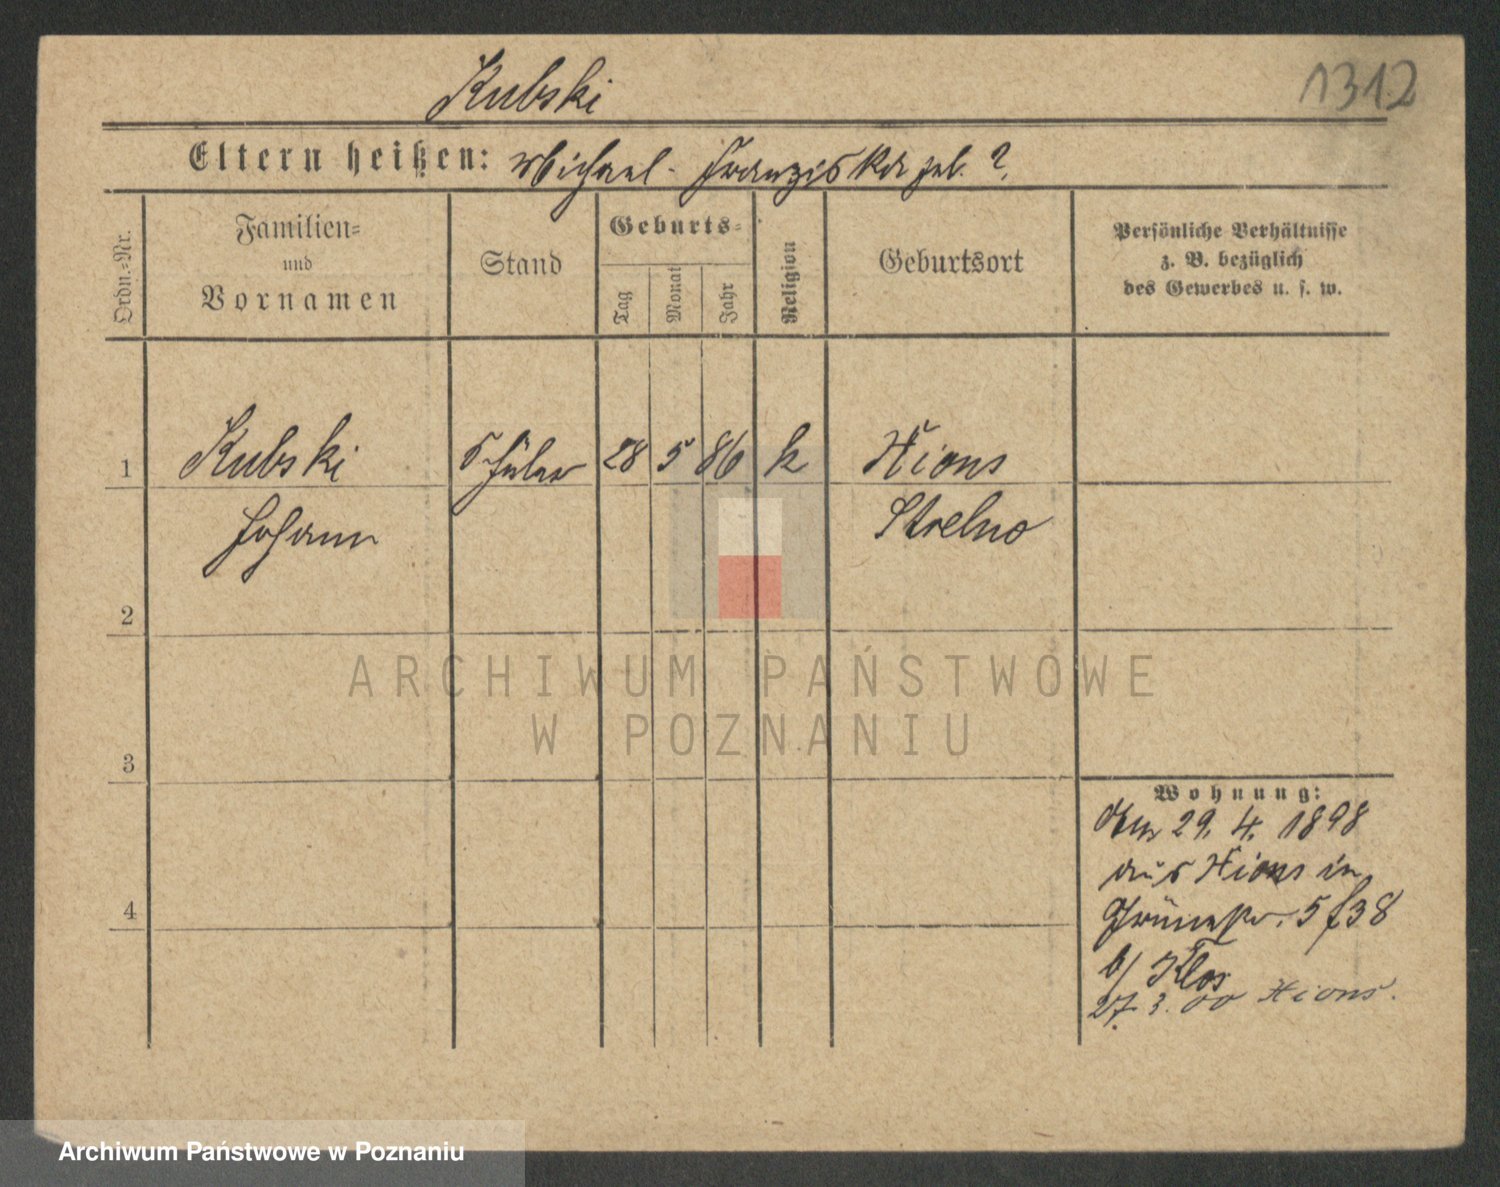 1312
Kubski
Eltern heißen: Michael - Franziska geb. ?
Ordn.-Nr.
Familien-
und
Vornamen
Stand
Geburts-
Tag
Monat
Jahr
Religion
Geburtsort
Persönliche Verhältnisse
z. B. bezüglich
des Gewerbes u. s. w.
1 Kubski Schüler 28 5 86 k Xions
Johann Strelno
2
3
4
Wohnung:
Am 29. 4. 1898
aus Xions in
Grünestr. 5 f 38
b/ Klos
27. 3. 00 Xions.
ARCHIWUM PAŃSTWOWE
W POZNANIU
Archiwum Państwowe w Poznaniu